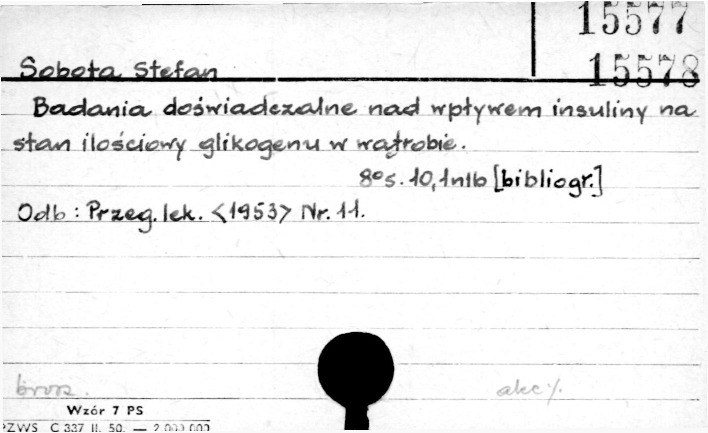 15577
15578
Sobota Stefan
Badania doświadczalne nad wpływem insuliny na
stan ilościowy glikogenu w wątrobie.
8° s. 10, 1nlb [bibliogr.]
Odb: Przeg. lek. <1953> Nr. 11.
brosz. akc ./.
Wzór 7 PS
PZWS C 337 II. 50. — 2 000 000